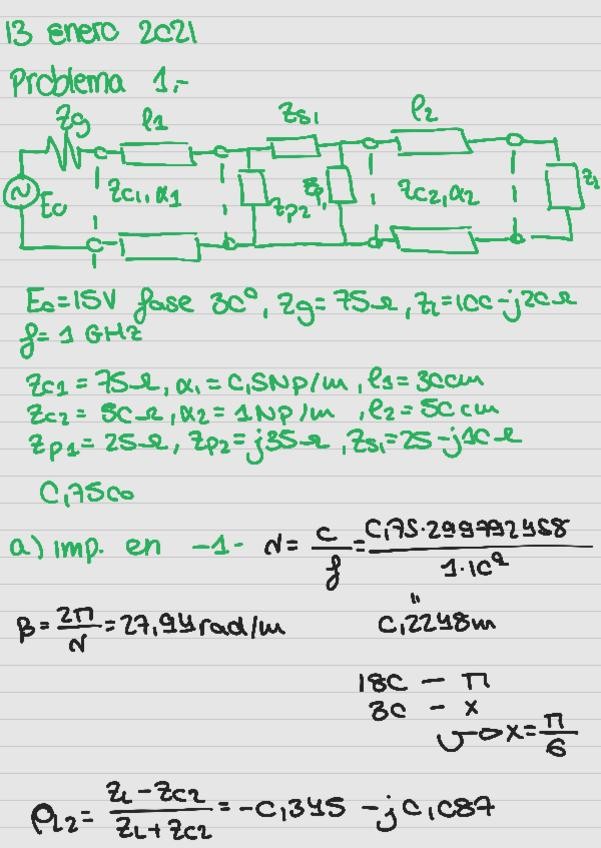 13 enero 2021
Problema 1.-
Zg ℓ1 Zs1 ℓ2
E0 Zc1, α1 Zp2 Zp1 Zc2, α2 ZL
E0=15V fase 30º, Zg=75Ω, ZL=100-j20Ω
f= 1 GHz
Zc1 = 75Ω, α1=0,5Np/m, ℓ1=30cm
Zc2 = 50Ω, α2=1Np/m, ℓ2=50cm
Zp1= 25Ω, Zp2=j35Ω, Zs1=25-j10Ω
0,75c0
a) imp. en -1- λ = c/f = 0,75·299792458/1·10⁹
β = 2π/λ = 27,94 rad/m " 0,2248m
180 — π
30 — x
→ x = π/6
ρL2 = ZL - Zc2/ZL + Zc2 = -0,345 -j0,087